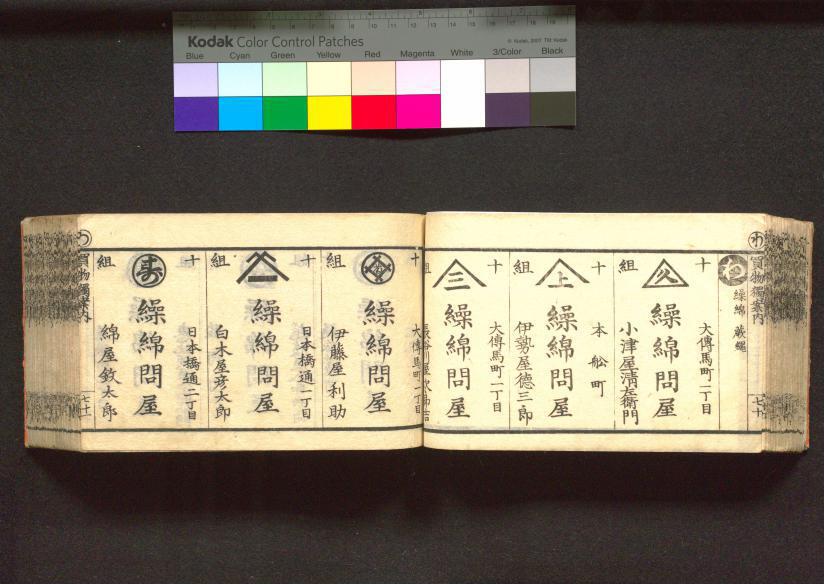 Kodak Color Control Patches
© Kodak, 2007 TM: Kodak
Blue Cyan Green Yellow Red Magenta White 3/Color Black
わ
買物獨案内
七十
わ
繰綿 蔵繩
十組
久
大傳馬町一丁目
繰綿問屋
小津屋清左衛門
十組
上
本舩町
繰綿問屋
伊勢屋德三郎
十組
三
大傳馬町一丁目
繰綿問屋
長谷川屋次郎吉
十組
大傳馬町一丁目
繰綿問屋
伊藤屋利助
十組
日本橋通一丁目
繰綿問屋
白木屋彦太郎
十組
寿
日本橋通二丁目
繰綿問屋
綿屋釚太郎
買物獨案内
七十一